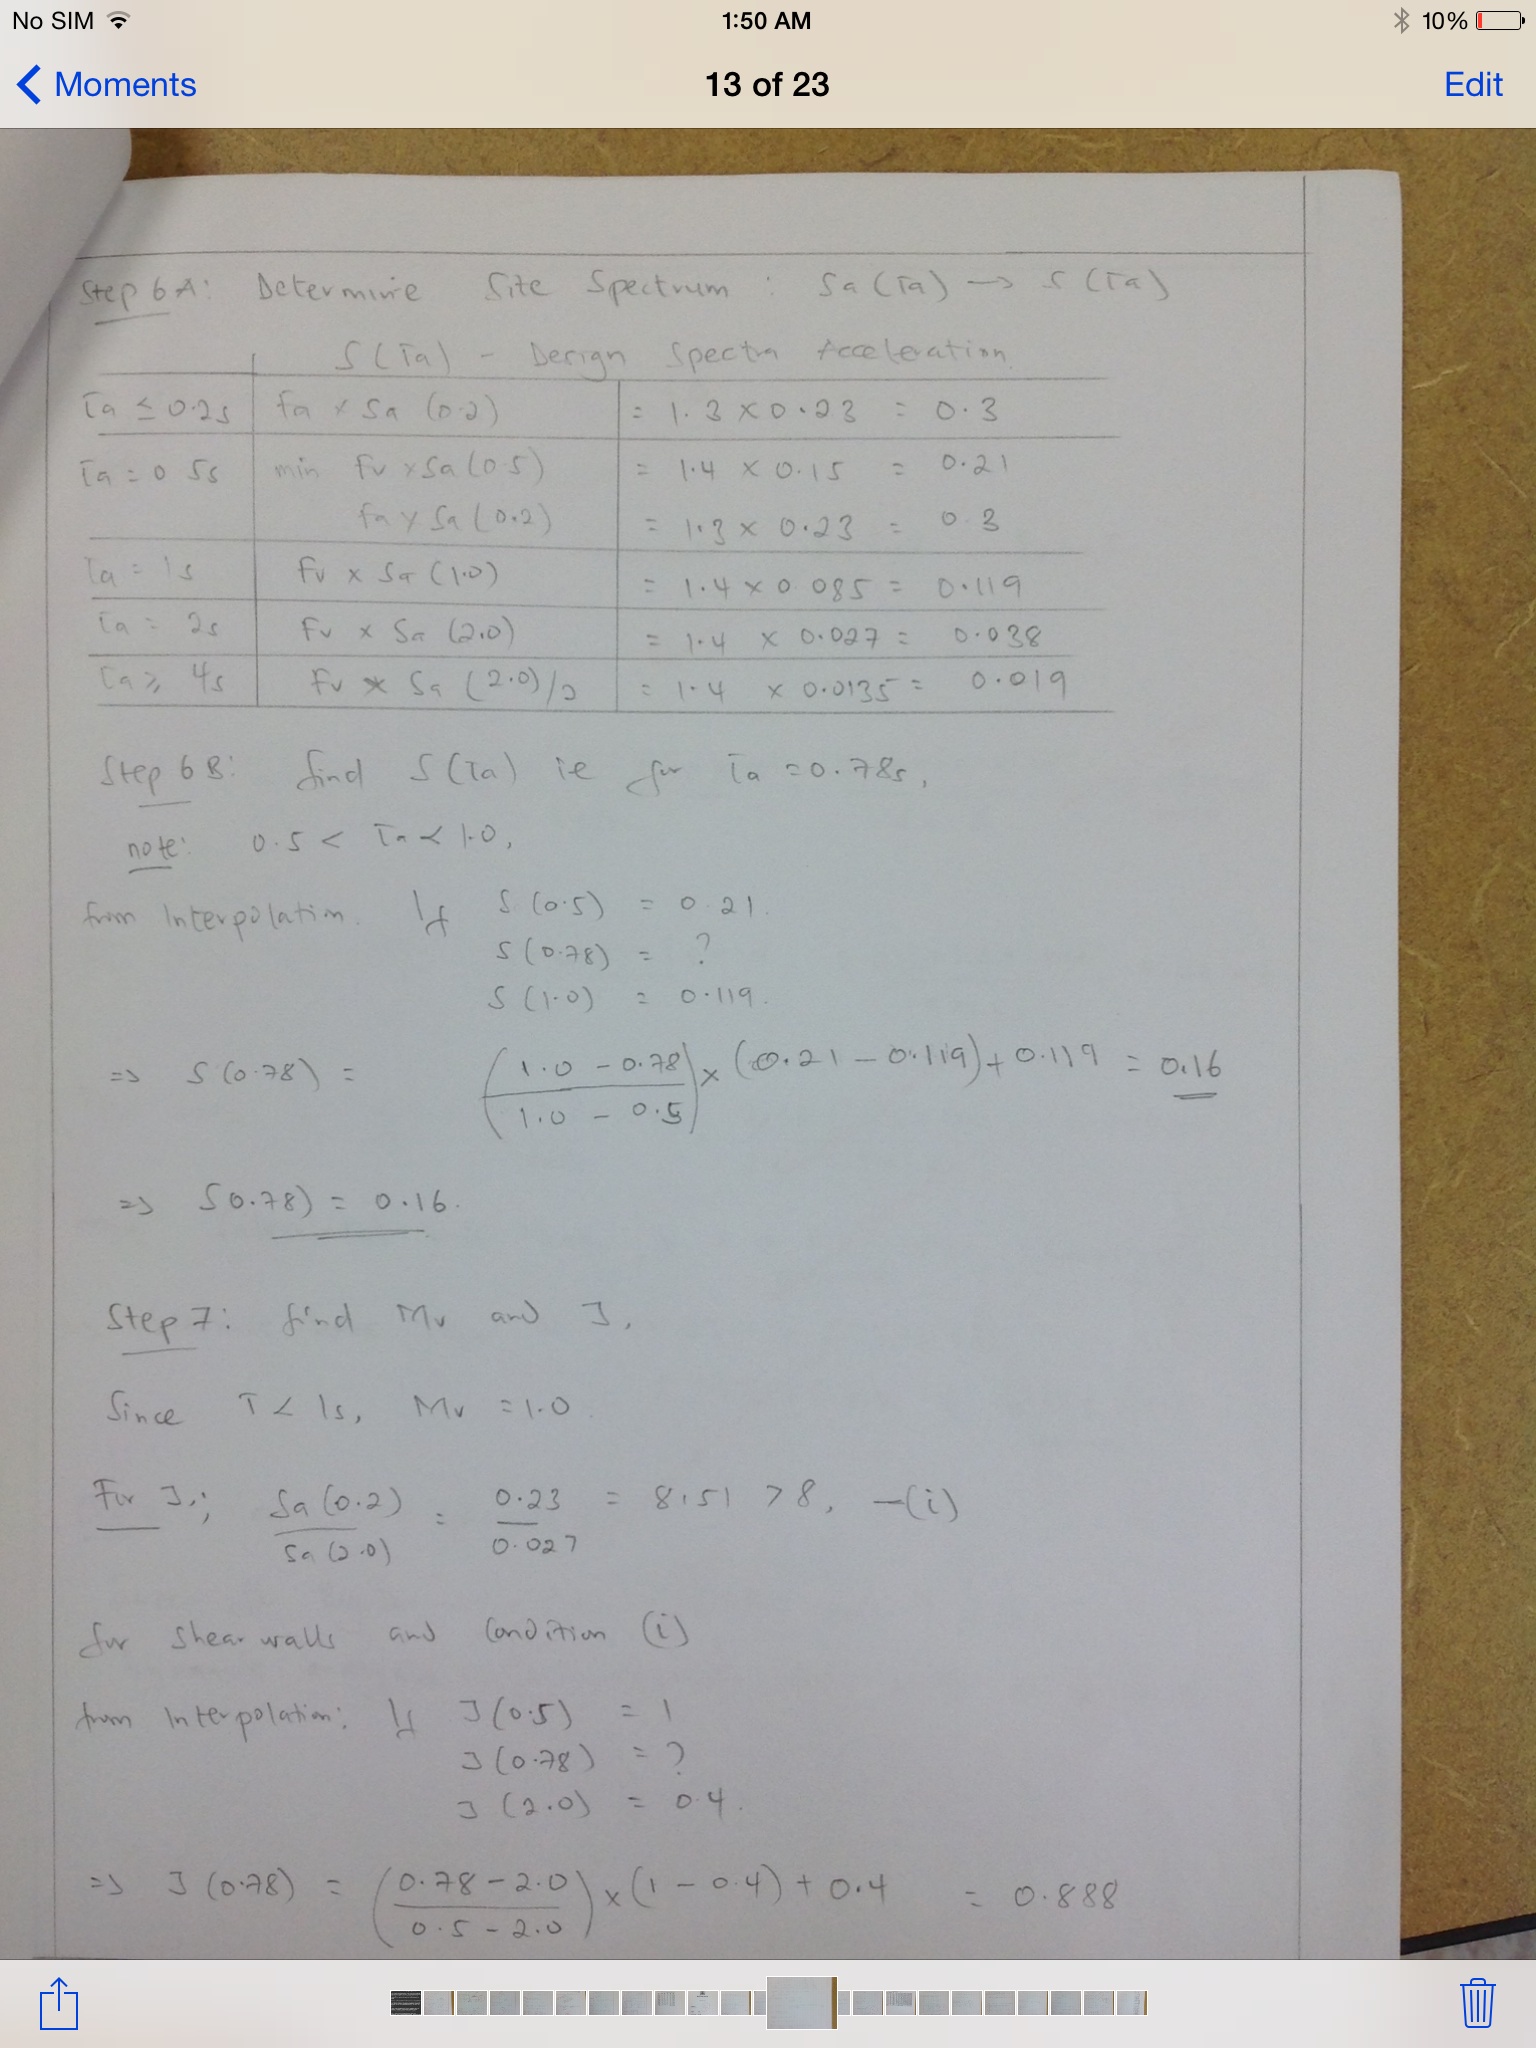 No SIM 1:50 AM 10%
Moments 13 of 23 Edit
Step 6A: Determine Site Spectrum : Sa (Ta) → S (Ta)
S(Ta) - Design Spectra Acceleration.
Ta ≤ 0.2s Fa x Sa (0.2) = 1.3 x 0.23 = 0.3
Ta = 0.5s min Fv x Sa (0.5) = 1.4 x 0.15 = 0.21
Fa x Sa (0.2) = 1.3 x 0.23 = 0.3
Ta = 1s Fv x Sa (1.0) = 1.4 x 0.085 = 0.119
Ta = 2s Fv x Sa (2.0) = 1.4 x 0.027 = 0.038
Ta ≥ 4s Fv x Sa (2.0)/2 = 1.4 x 0.0135 = 0.019
Step 6B: find S(Ta) ie for Ta = 0.78s,
note: 0.5 < Ta < 1.0,
from Interpolation. If S (0.5) = 0.21.
S (0.78) = ?
S (1.0) = 0.119.
=> S (0.78) = (1.0 - 0.78 / 1.0 - 0.5) x (0.21 - 0.119) + 0.119 = 0.16
=> S0.78) = 0.16.
Step 7: find Mv and J,
Since T < 1s, Mv = 1.0.
For J,; Sa (0.2) / Sa (2.0) = 0.23 / 0.027 = 8.51 > 8, -(i)
for shear walls and condition (i)
from Interpolation: If J (0.5) = 1
J (0.78) = ?
J (2.0) = 0.4.
=> J (0.78) = (0.78 - 2.0 / 0.5 - 2.0) x (1 - 0.4) + 0.4 = 0.888